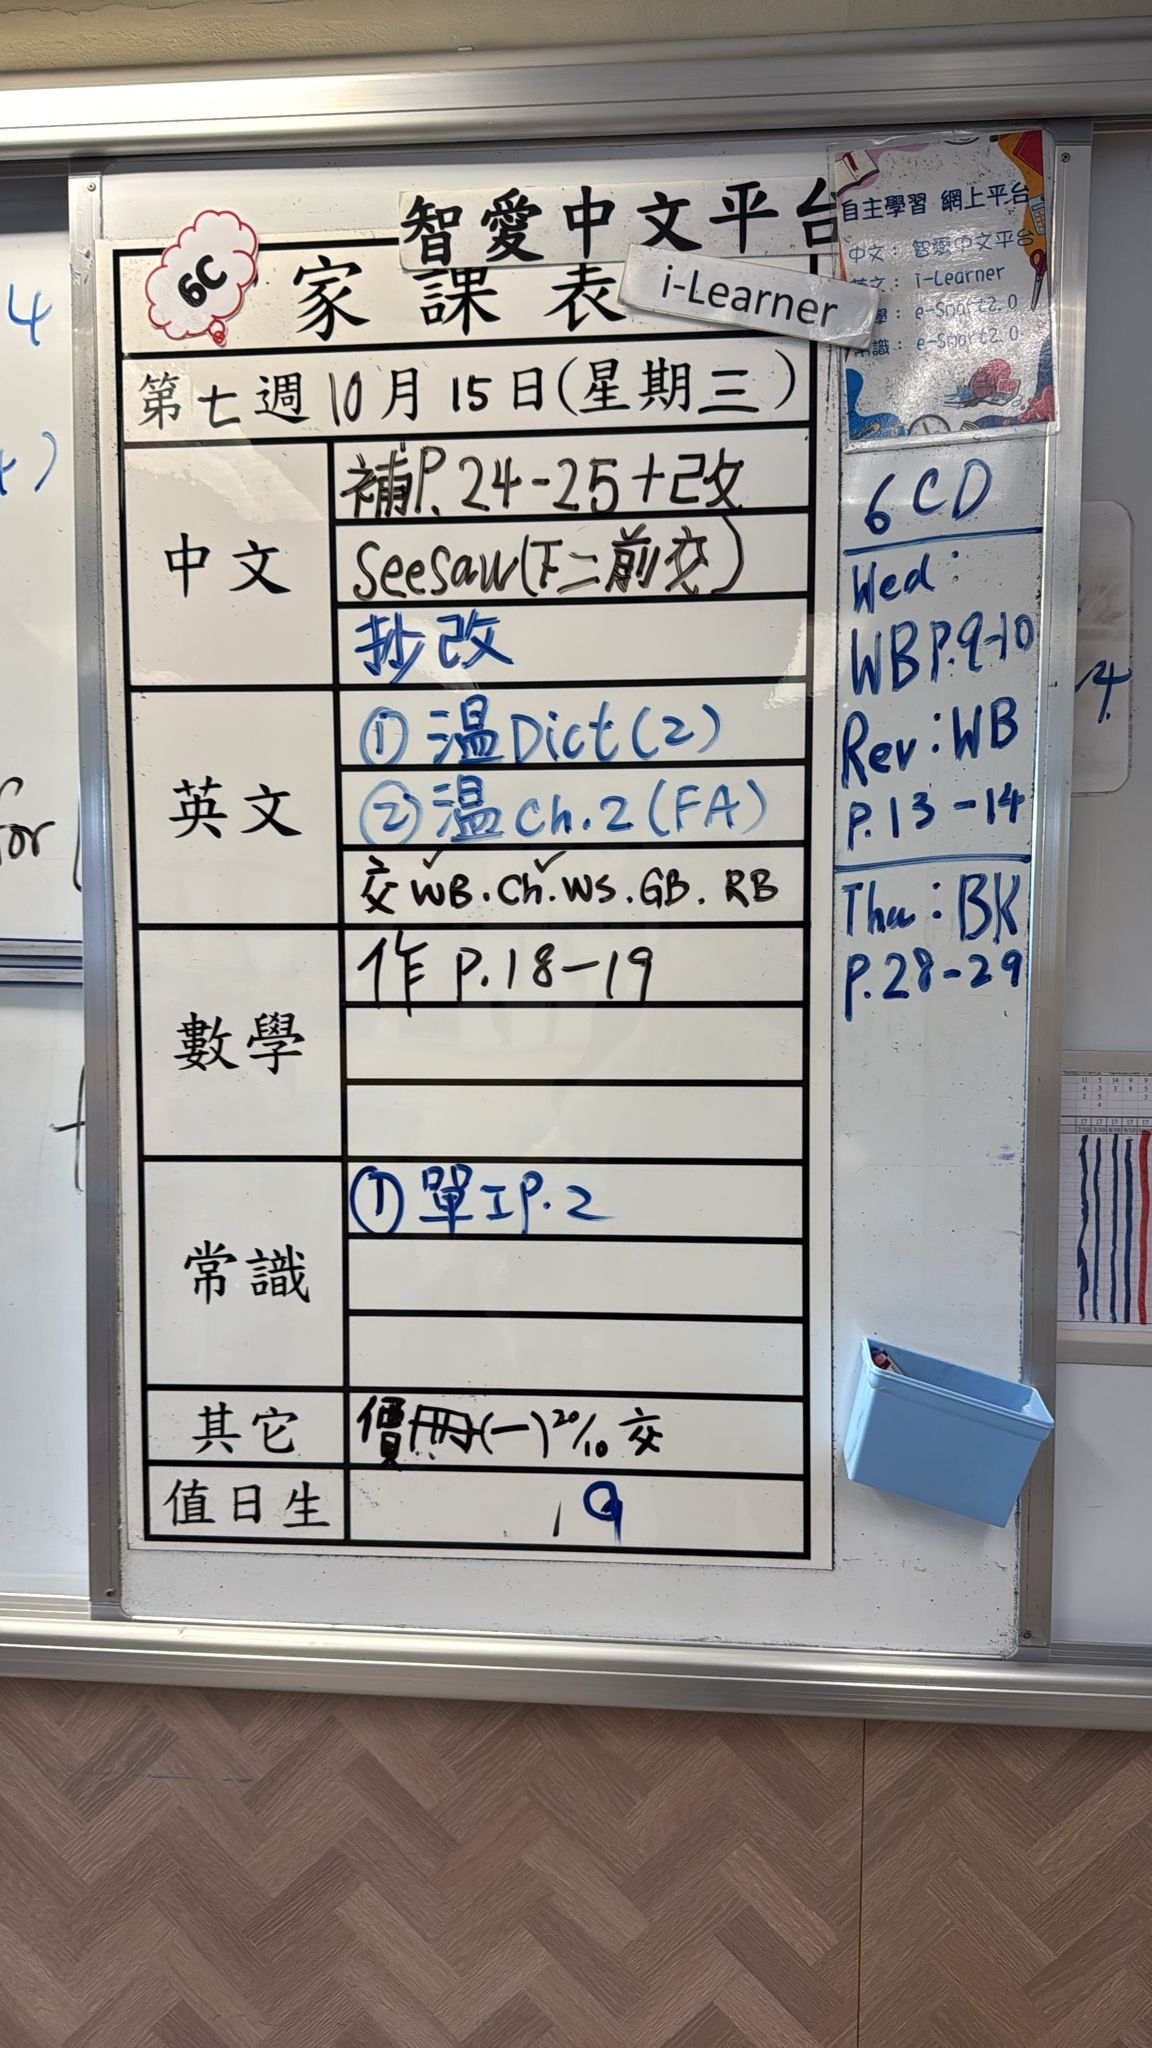 智愛中文平台
6C
家課表
i-Learner
第七週10月15日(星期三)
中文
補P.24-25+改
Seesaw(下二前交)
抄改
英文
① 溫Dict(2)
② 溫Ch.2(FA)
交 WB.Ch.WS.GB.RB
數學
作 P.18-19
常識
① 單I P.2
其它
(一)20/10 交
值日生
19
自主學習 網上平台
中文：智愛中文平台
英文：i-Learner
學：e-Smart2.0
常識：e-Smart2.0
6CD
Wed:
WB P.9-10
Rev:WB
P.13-14
Thu:BK
P.28-29
4
for
4